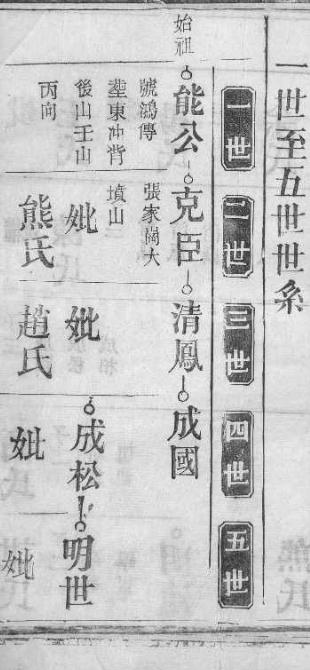 一世至五世世系
一世 二世 三世 四世 五世
始祖
能公 克臣 清鳳 成國
號鴻傳
塟東冲背
後山壬山
丙向
張家崗大
墳山
妣
熊氏
妣
趙氏
成松 明世
妣
妣